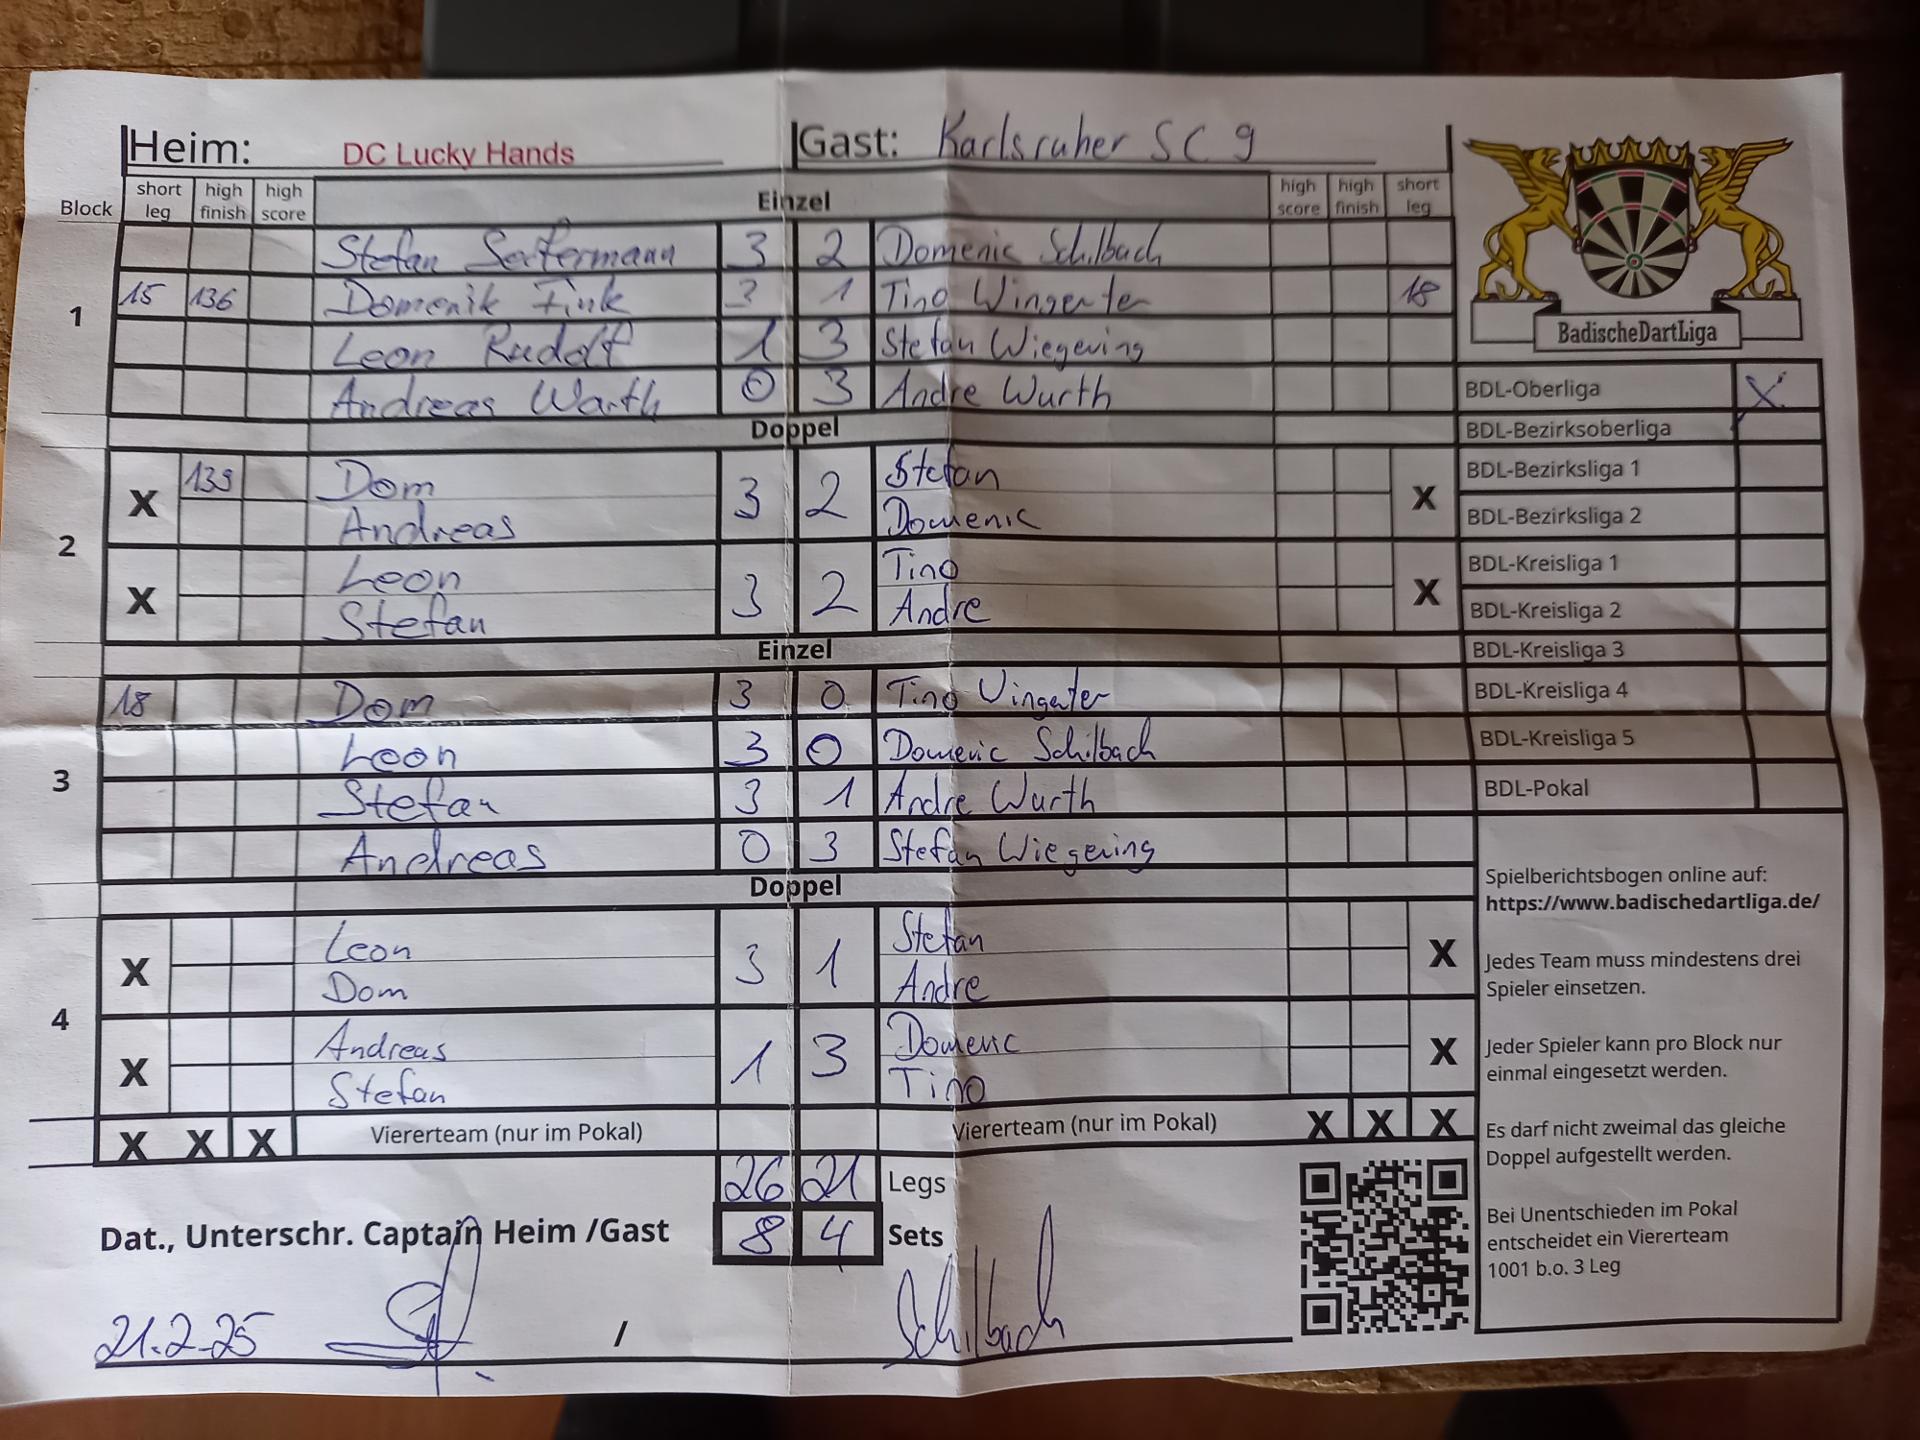 Heim: DC Lucky Hands Gast: Karlsruher SC 9
Block short leg high finish high score Einzel high score high finish short leg
1
Stefan Seitermann 3 2 Domenic Schilbach
15 136 Domenik Fink 3 1 Tino Wingerter 18
Leon Rudolf 1 3 Stefan Wiegering
Andreas Warth 0 3 Andre Wurth
Doppel
2
X 139 Dom 3 2 Stefan X
Andreas Domenic
X Leon 3 2 Tino X
Stefan Andre
Einzel
3
18 Dom 3 0 Tino Wingerter
Leon 3 0 Domenic Schilbach
Stefan 3 1 Andre Wurth
Andreas 0 3 Stefan Wiegering
Doppel
4
X Leon 3 1 Stefan X
Dom Andre
X Andreas 1 3 Domenic X
Stefan Tino
X X X Viererteam (nur im Pokal) Viererteam (nur im Pokal) X X X
26 21 Legs
Dat., Unterschr. Captain Heim /Gast 8 4 Sets
21.2.25 / Schilbach
BadischeDartLiga
BDL-Oberliga X
BDL-Bezirksoberliga
BDL-Bezirksliga 1
BDL-Bezirksliga 2
BDL-Kreisliga 1
BDL-Kreisliga 2
BDL-Kreisliga 3
BDL-Kreisliga 4
BDL-Kreisliga 5
BDL-Pokal
Spielberichtsbogen online auf:
https://www.badischedartliga.de/
Jedes Team muss mindestens drei
Spieler einsetzen.
Jeder Spieler kann pro Block nur
einmal eingesetzt werden.
Es darf nicht zweimal das gleiche
Doppel aufgestellt werden.
Bei Unentschieden im Pokal
entscheidet ein Viererteam
1001 b.o. 3 Leg